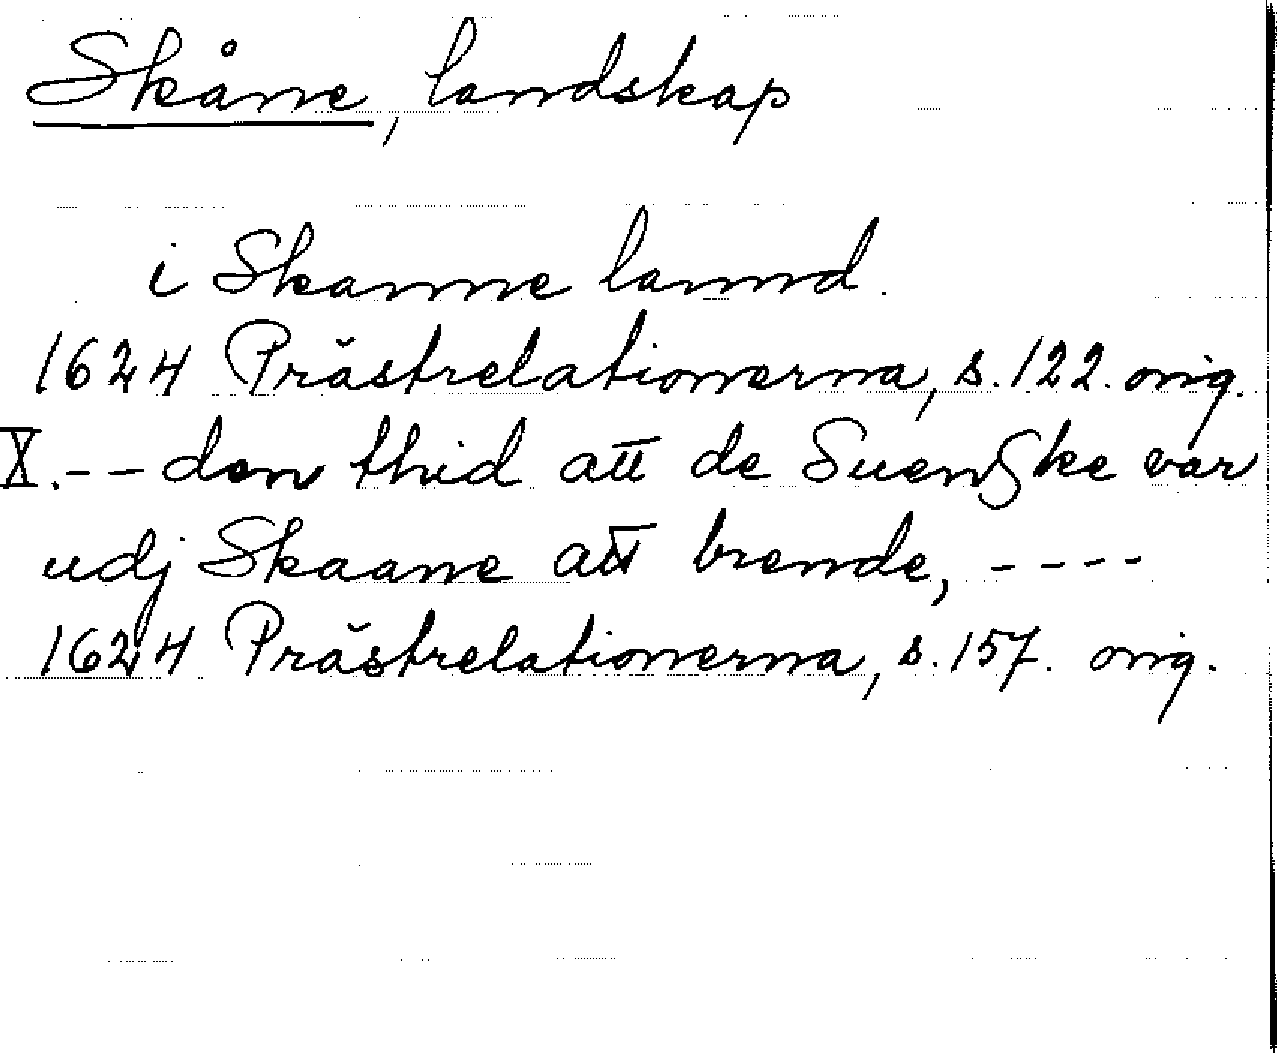 Skåne, landskap
i Skanne lannd.
1624 Prästrelationerna, s. 122. orig.
X. -- den thid att de Suenske var
udj Skaane att brende, ----
1624 Prästrelationerna, s. 157. orig.